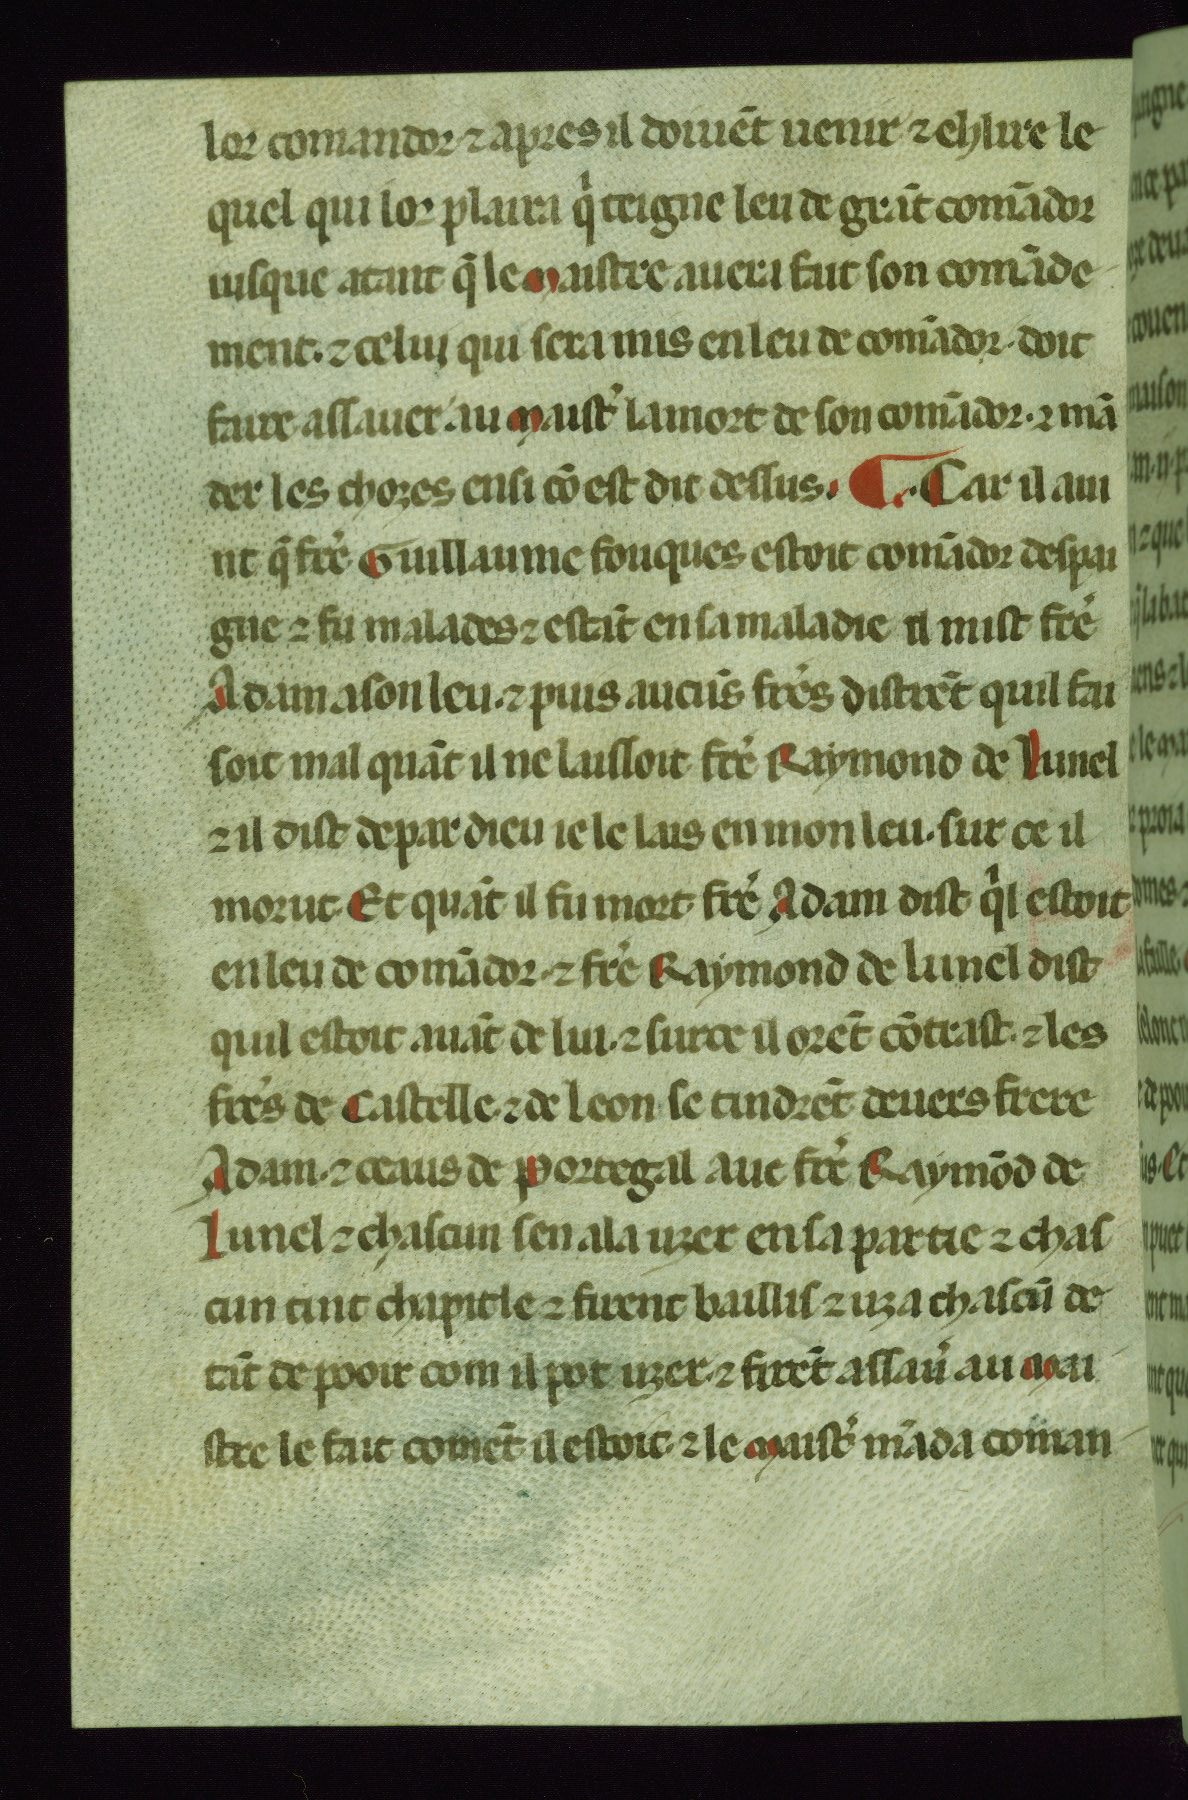 lor comandor· ⁊ apres il doiuēt uenir ⁊ ehlire le
quel qui lor plaira qͥ teigne leu de grāt comādor
iusque atant q̄ le maistre auera fait son comāde
ment· ⁊ celui qui sera mis en leu de comādor· doit
faire assauer au maist᾽ la mort de son comādor· ⁊ mā
der les chozes ensi cō est dit dessus· ¶ Car il aui
nt q̄ fre᾽ Guillaume fouques estoit comādor despai
gne ⁊ fu malades ⁊ estāt en sa maladie il mist fre᾽
Adam a son leu· ⁊ puis aucūs fre᾽s distrēt quil fai
soit mal quāt il ne laissoit fre᾽ Raymond de Lunel
⁊ il dist depar dieu ie le lais en mon leu· sur ce il
morut· Et quāt il fu mort fre᾽ Adam dist qͥl estoit
en leu de comādor· ⁊ fre᾽ Raymond de lunel dist
quil estoit auāt de lui· ⁊ sur ce il orēt cōtrast· ⁊ les
fre᾽s de Castelle· ⁊ de leon se tindrēt deuers frere
Adam· ⁊ ceaus de Portegal aue fre᾽ Raymōd de
Lunel ⁊ chascun sen ala uzer en sa partie ⁊ chas
cun tint chapitle ⁊ firent baillis ⁊ uza chascū de
tāt de pooir com il pot uzer· ⁊ firēt assau᾽ au mai
stre le fait comēt il estoit· ⁊ le maist᾽ māda coman